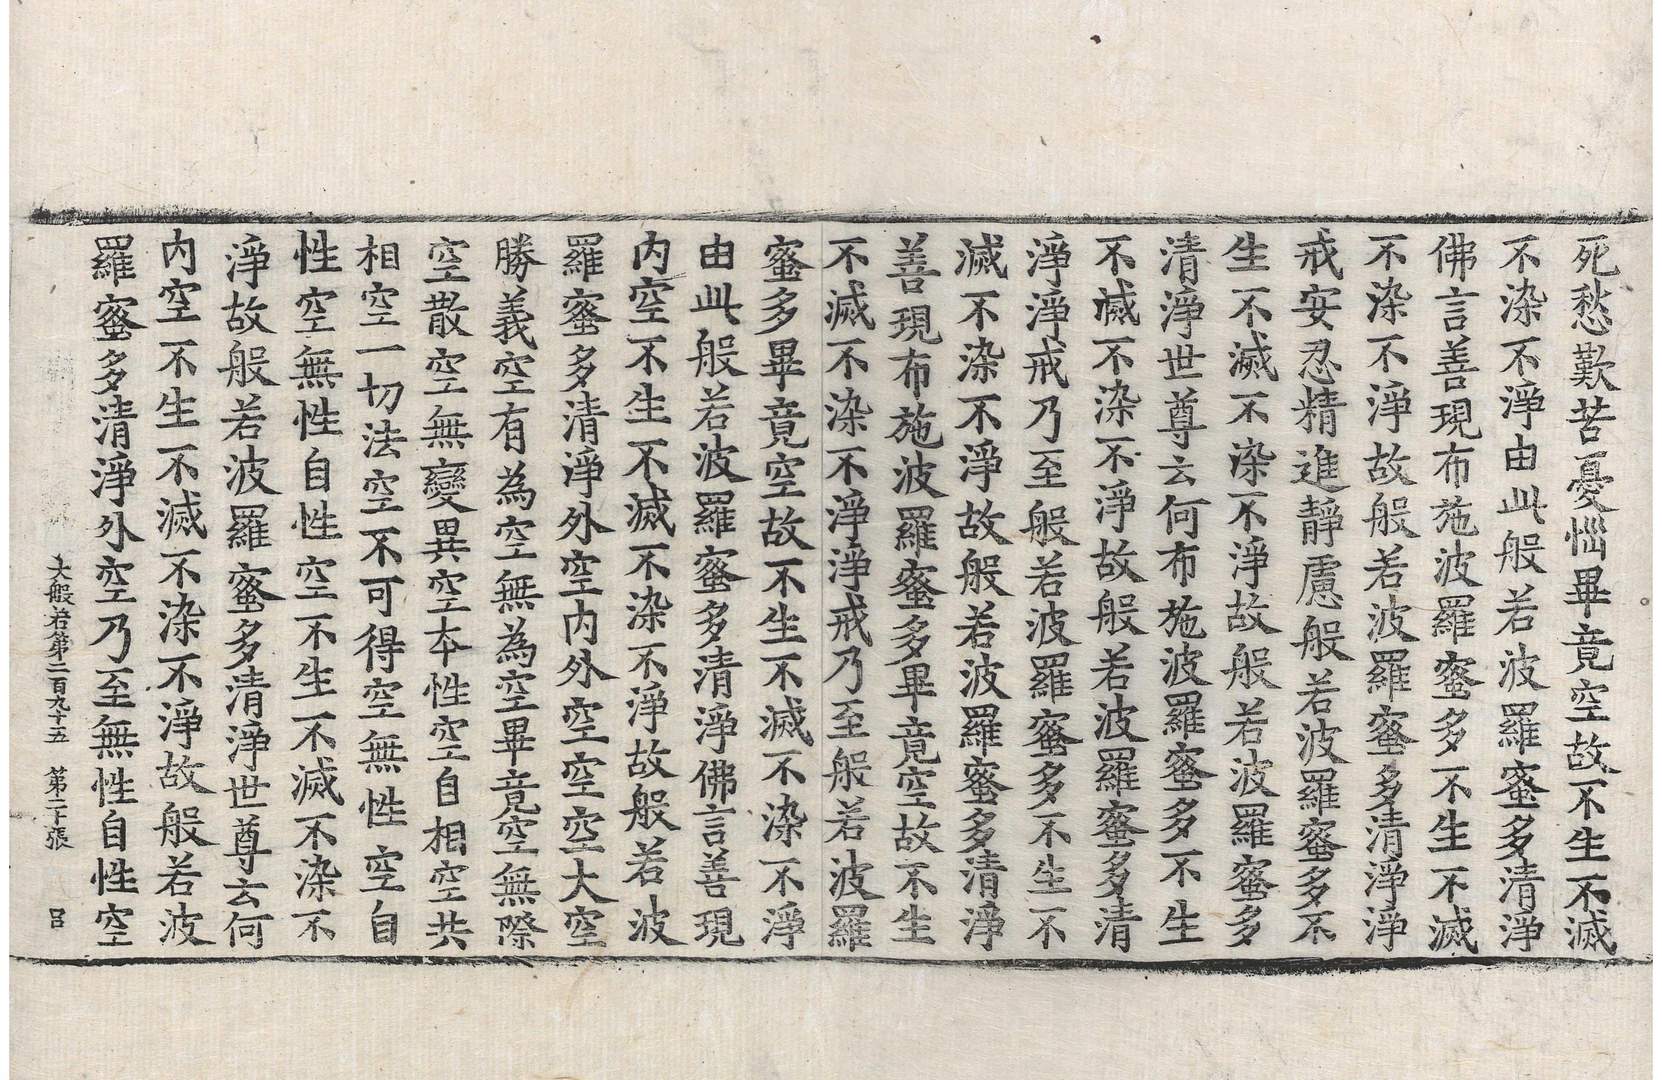 死愁歎苦憂惱畢竟空故不生不滅
不染不淨由此般若波羅蜜多清淨
佛言善現布施波羅蜜多不生不滅
不染不淨故般若波羅蜜多清淨淨
戒安忍精進靜慮般若波羅蜜多不
生不滅不染不淨故般若波羅蜜多
清淨世尊云何布施波羅蜜多不生
不滅不染不淨故般若波羅蜜多清
淨淨戒乃至般若波羅蜜多不生不
滅不染不淨故般若波羅蜜多清淨
善現布施波羅蜜多畢竟空故不生
不滅不染不淨淨戒乃至般若波羅
蜜多畢竟空故不生不滅不染不淨
由此般若波羅蜜多清淨佛言善現
內空不生不滅不染不淨故般若波
羅蜜多清淨外空內外空空空大空
勝義空有為空無為空畢竟空無際
空散空無變異空本性空自相空共
相空一切法空不可得空無性空自
性空無性自性空不生不滅不染不
淨故般若波羅蜜多清淨世尊云何
內空不生不滅不染不淨故般若波
羅蜜多清淨外空乃至無性自性空
大般若第二百九十五 第二十張 呂